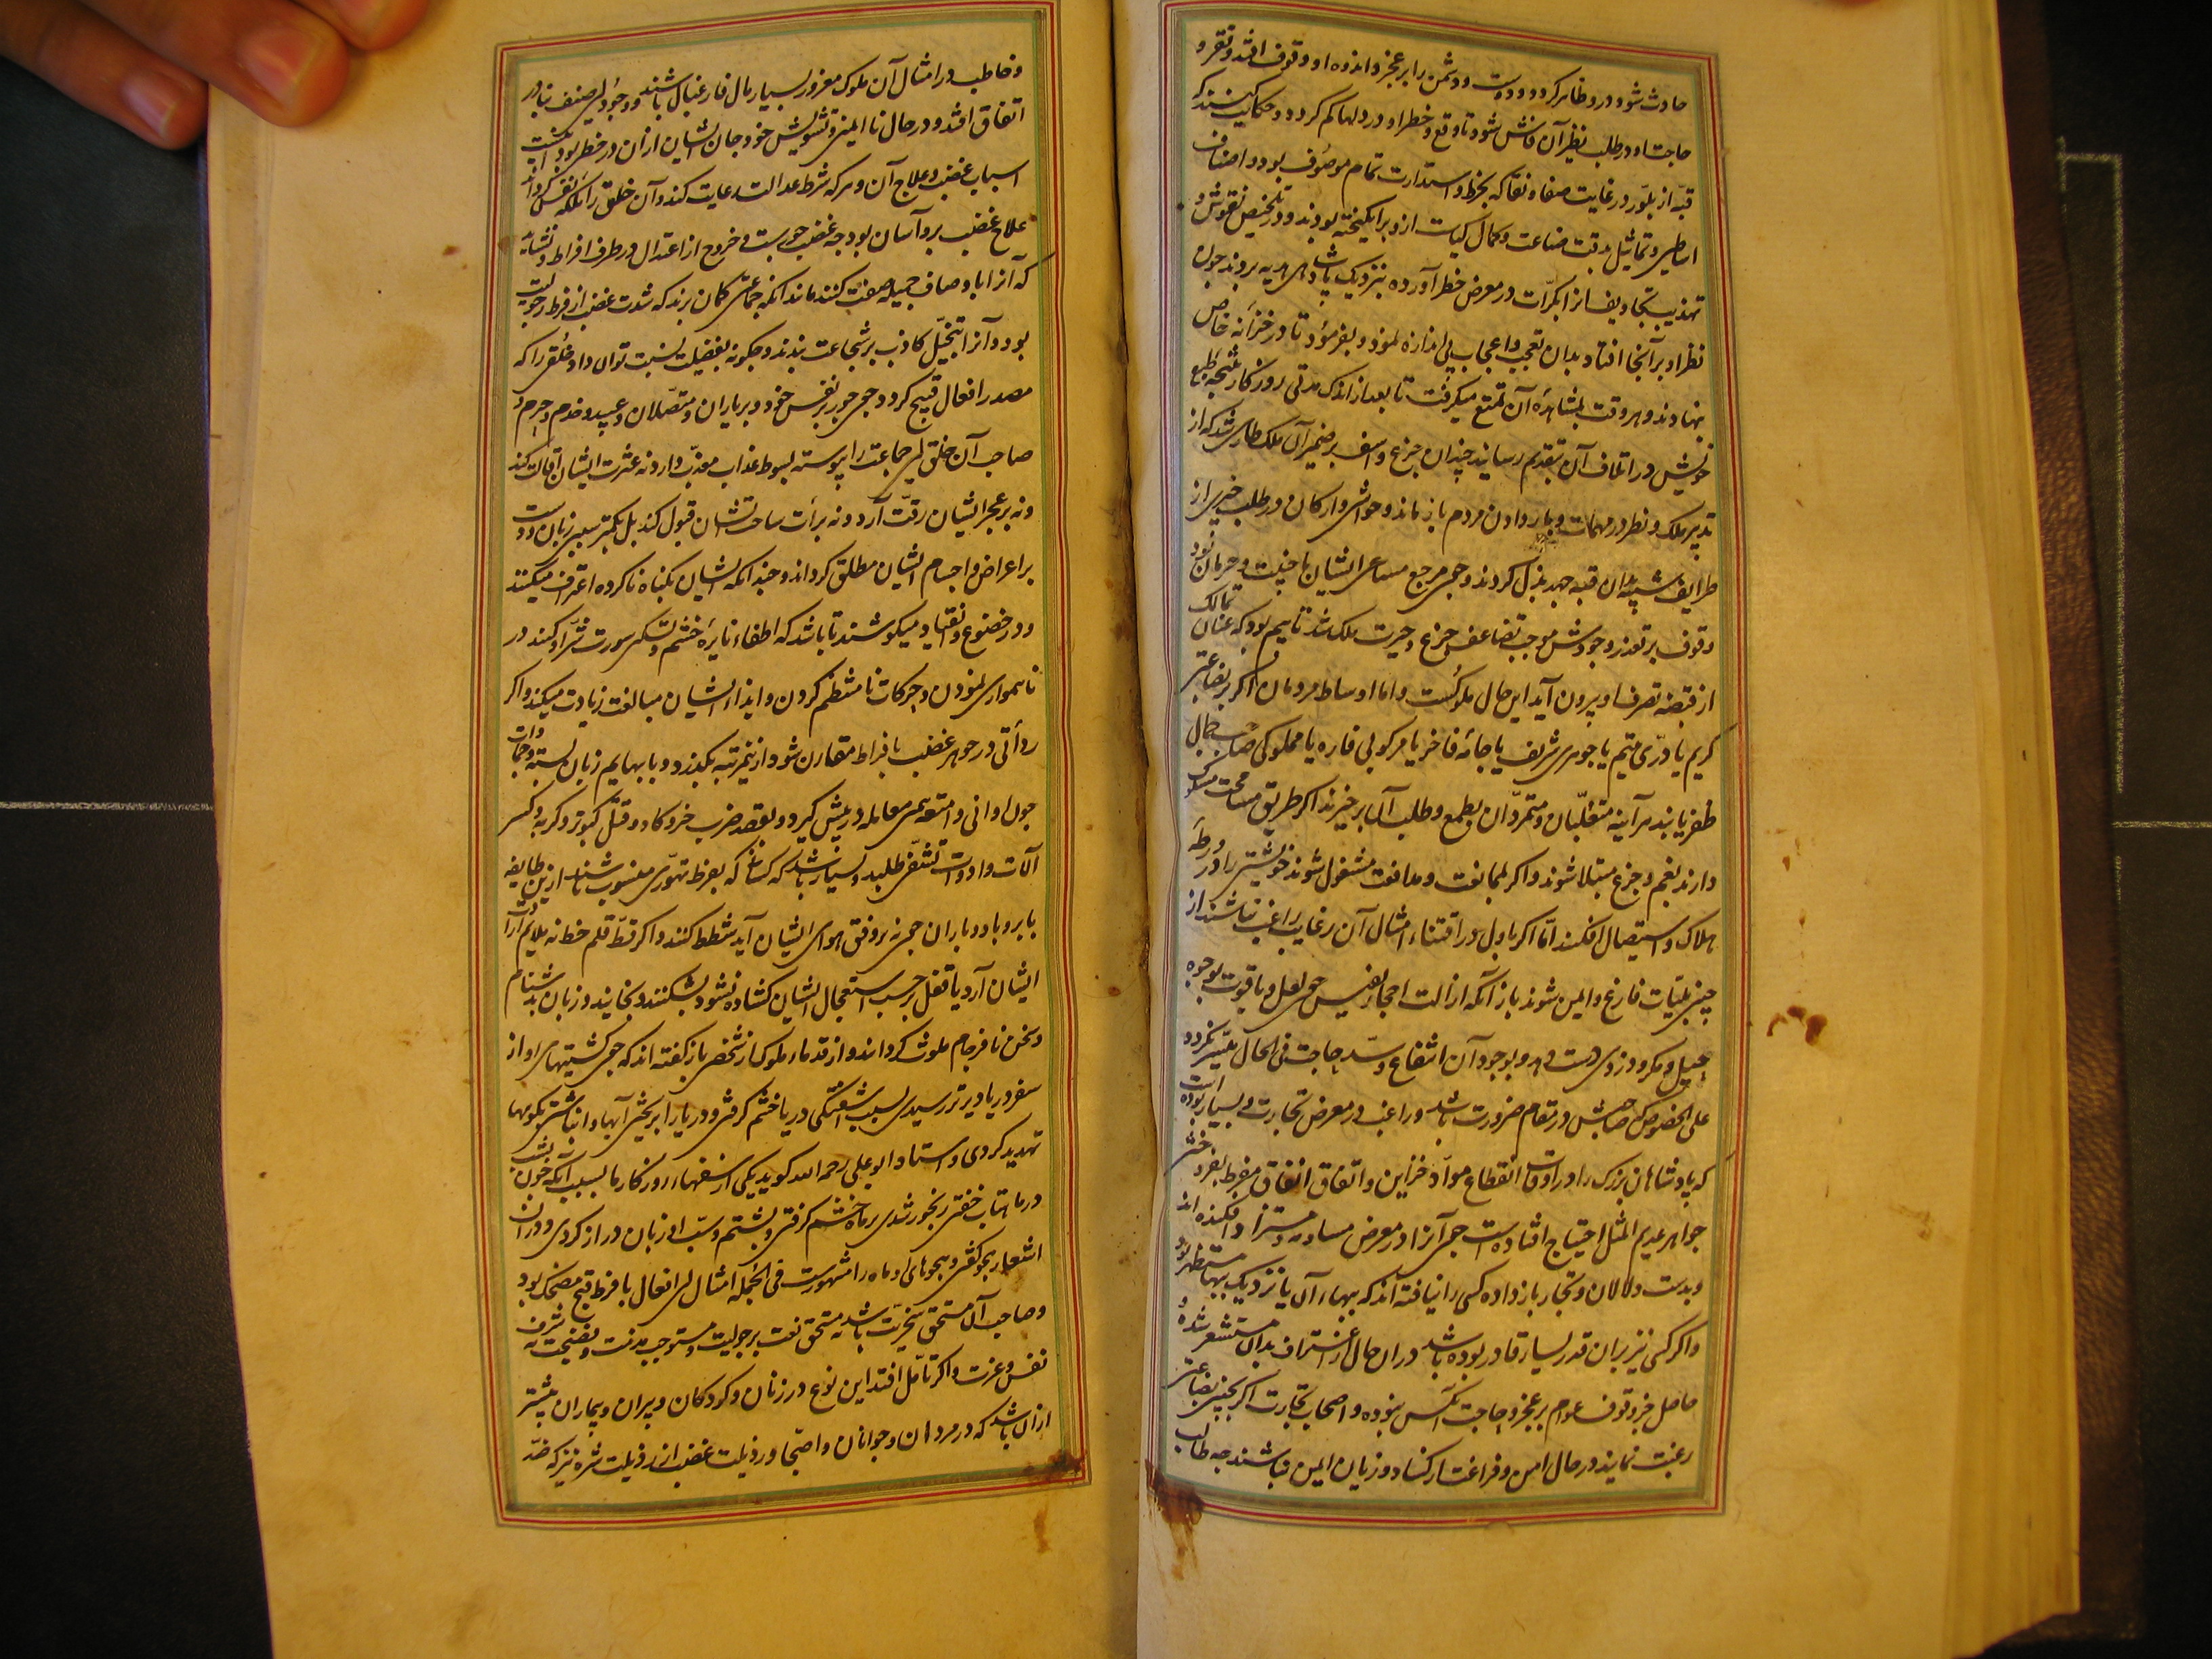 حادث شود و درو ظاهر کردد و دوست و دشمن را بر عجز و اندوه او وقوف افتد و فقر و
حاجت او در طلب نظیر آن فاش شود تا وقع و خطر او در دلها کم کردد و حکایت کنند که
قبه از بلور در غایت صفا و نقا که بخرط و استدارت تمام موصوف بود و اصناف
اساطین و تماثیل بدقت صناعت و کمال کیاست ازو برانکیخته بودند و در تلخیص نقوش و
تهذیب تجاویف انرا بکرات در معرض خطر آورده بنزدیک پادشاهی هدیه بردند چون
نظر او بر آنجا افتاد بدان تعجب و اعجاب بی اندازه نمود و بفرمود تا در خزانه خاص
بنهادند و هر وقت بمشاهده آن تمتع میکرفت تا بعد از اندک مدتی روزکار نتیجه طبع
خویش در اتلاف آن بتقدیم رسانید چندان جزع و اسف بر ضمیر آن ملک طاری شد که از
تدبیر ملک و نظر در مهمات و بار دادن مردم باز ماند و حواشی و ارکان در طلب چیزی از
طرایف شبیه بدان قبه جهد بذل کردند و چون مرجع مساعی ایشان با خیبت و حرمان بود
وقوف بر تعذر وجودش موجب تضاعف جزع و حیرت ملک شد تا بیم بود که عنان تمالک
از قبضه تصرف او بیرون آید این حال ملوکست و اما اوساط مردمان اکر بر بضاعتی
کریم یا دری یتیم یا جوهری شریف یا جامه فاخر یا مرکوبی فاره یا مملوکی صاحب جمال
ظفر یابند هر آینه متغلبان و متمردان بطمع و طلب آن برخیزند اکر طریق مسامحت مسلوک
دارند بغم و جزع مبتلا شوند و اکر بممانعت و مدافعت مشغول شوند خویشتن را در ورطه
هلاک و استیصال افکنند اما اکر باول در اقتناء امثال آن رغایب راغب نباشند از
چنین بلیات فارغ و ایمن شوند باز آنکه از آلت احجار نفیس چون لعل و یاقوت بوجوه
حیل و مکر و دزدی دست دهد و بوجود آن انتفاع و سد حاجت فی الحال میسر نکردد
علی الخصوص که صاحبش در مقام ضرورت باشد و راغب در معرض تجارت و بسیار بوده است
که پادشاهان بزرک را در اوقات انقطاع مواد خزاین و اتفاق انفاق مفرط بفروختن
جواهر عدیم المثل احتیاج افتادست چون آنرا در معرض مساومه و مزاد افکنده اند
و بدست دلالان و تجار باز داده کسی را نیافته اند که ببهاء آن یا نزدیک ببها مستظهر بود
و اکر کسی نیز بران قدر یسار قادر بوده باشد دران حال از اعتراف بدان مستشعر شده و
حاصل جز وقوف عوام بر عجز و حاجت آنکس نبوده و اصحاب تجارت اکر بچنین بضاعتی
رغبت نمایند در حال امن و فراغت از کساد و زیان ایمن نباشند چه طالب
و خاطب در امثال آن ملوک مغرور بسیار مال فارغ بال باشند و وجود این صنف بنادر
اتفاق افتد و در حال نا ایمنی و تشویش خود جان ایشان ازان در خطر بود اینست
اسباب غضب و علاج آن و هر که شرط عدالت رعایت کند و آن خلق را ملکه نفس کرداند
علاج غضب برو آسان بود چه غضب جورست و خروج از اعتدال در طرف افراط و نشاید
که آنرا باوصاف جمیله صفت کنند مانند آنکه جماعتی کمان برند که شدت غضب از فرط رجولیت
بود و آنرا بتخیل کاذب بر شجاعت بندند و چکونه بفضیلت نسبت توان داد خلقی را که
مصدر افعال قبیح کردد چون جور بر نفس خود و بر یاران و متصلان و عبید و خدم و حرم و
صاحب آن خلق این جماعت را پیوسته بسوط عذاب معذب دارد نه عثرت ایشان اقالت کند
و نه بر عجز ایشان رقت آرد و نه برأت ساحتشان قبول کند بل بکمتر سببی زبان و دست
بر اعراض و اجسام ایشان مطلق کرداند و چندانکه ایشان بکناه ناکرده اعتراف میکنند
و در خضوع و انقیاد میکوشند تا باشد که اطفاء نایره خشم و تسکین سورت شر او کنند در
ناهمواری نمودن و حرکات نا منتظم کردن و ایذاء ایشان مبالغت زیادت میکند و اکر
ردأتی در جوهر غضب با فراط مقارن شود ازین مرتبه بکذرد و با بهایم زبان بسته و جمادات
چون اوانی و امتعه همین معامله در پیش کیرد و بقصد ضرب خر و کاو و قتل کبوتر و کربه و کسر
آلات و ادوات تشفی طلبد و بسیار باشد که کسانی که بفرط تهوری منسوب باشند ازین طایفه
با ابر و باد و باران چون نه بر وفق هوای ایشان آید شطط کنند و اکر قط قلم خط نه ملایم ارادت
ایشان آرد یا قفل بر حسب استعجال ایشان کشاده نشود بشکنند و بخایند و زبان بدشنام
و سخن نافرجام ملوث کردانند و از قدماء ملوک از شخصی باز کفته اند که چون کشتیهای او از
سفر دریا دیرتر رسیدی بسبب آشفتکی دریا خشم کرفتی و دریا را بریختن آبها و انباشتن بکوهها
تهدید کردی و استاد ابو علی رحمه الله کوید یکی از سفهاء روزکار ما بسبب آنکه چون بشب
در ماهتاب خفتی رنجور شدی بر ماه خشم کرفتی و بشتم و سب او زبان دراز کردی و دران
اشعار بهجو کفتی و هجوهای او ماه را مشهورست فی الجمله امثال این افعال با فرط قبح مضحک بود
و صاحب آن مستحق سخریت باشد نه مستحق نعت برجولیت و مستوجب مذمت و فضیحت نه شرف
نفس و عزت و اکر تأمل افتد این نوع در زنان و کودکان و پیران و بیماران بیشتر
ازان باشد که در مردان و جوانان و اصحا و رذیلت غضب از رذیلت شره نیز که ضد